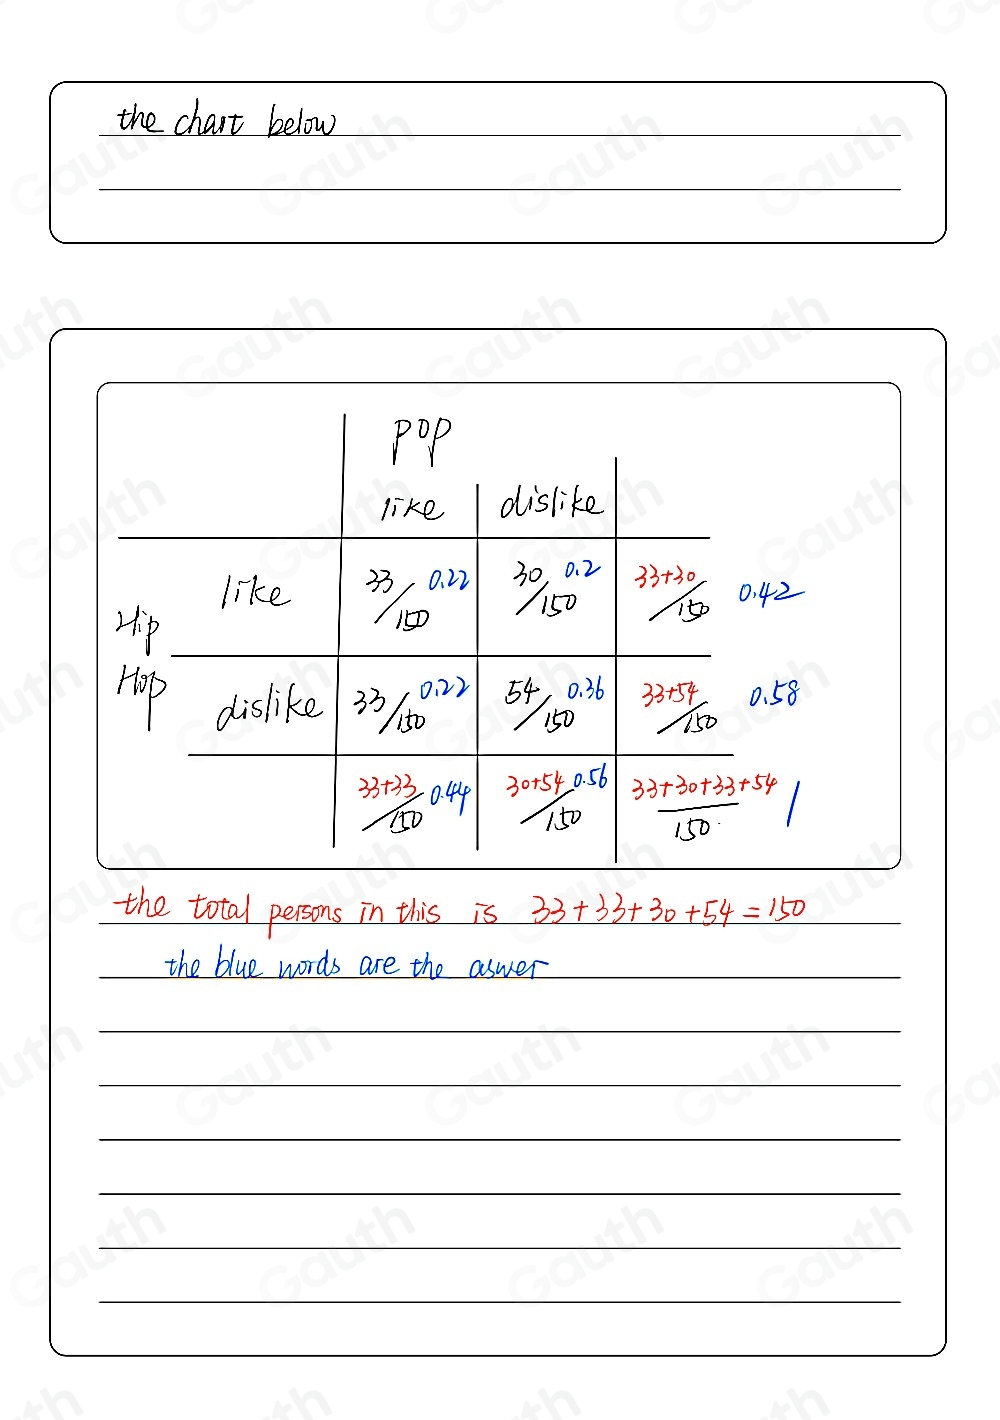 the chart below
pop
like dislike
like 33/150 0.22 30/150 0.2 33+30/150 0.42
Hip
Hop
dislike 33/150 0.22 54/150 0.36 33+54/150 0.58
33+33/150 0.44 30+54/150 0.56 33+30+33+54/150 1
the total persons in this is 33+33+30+54=150
the blue words are the aswer